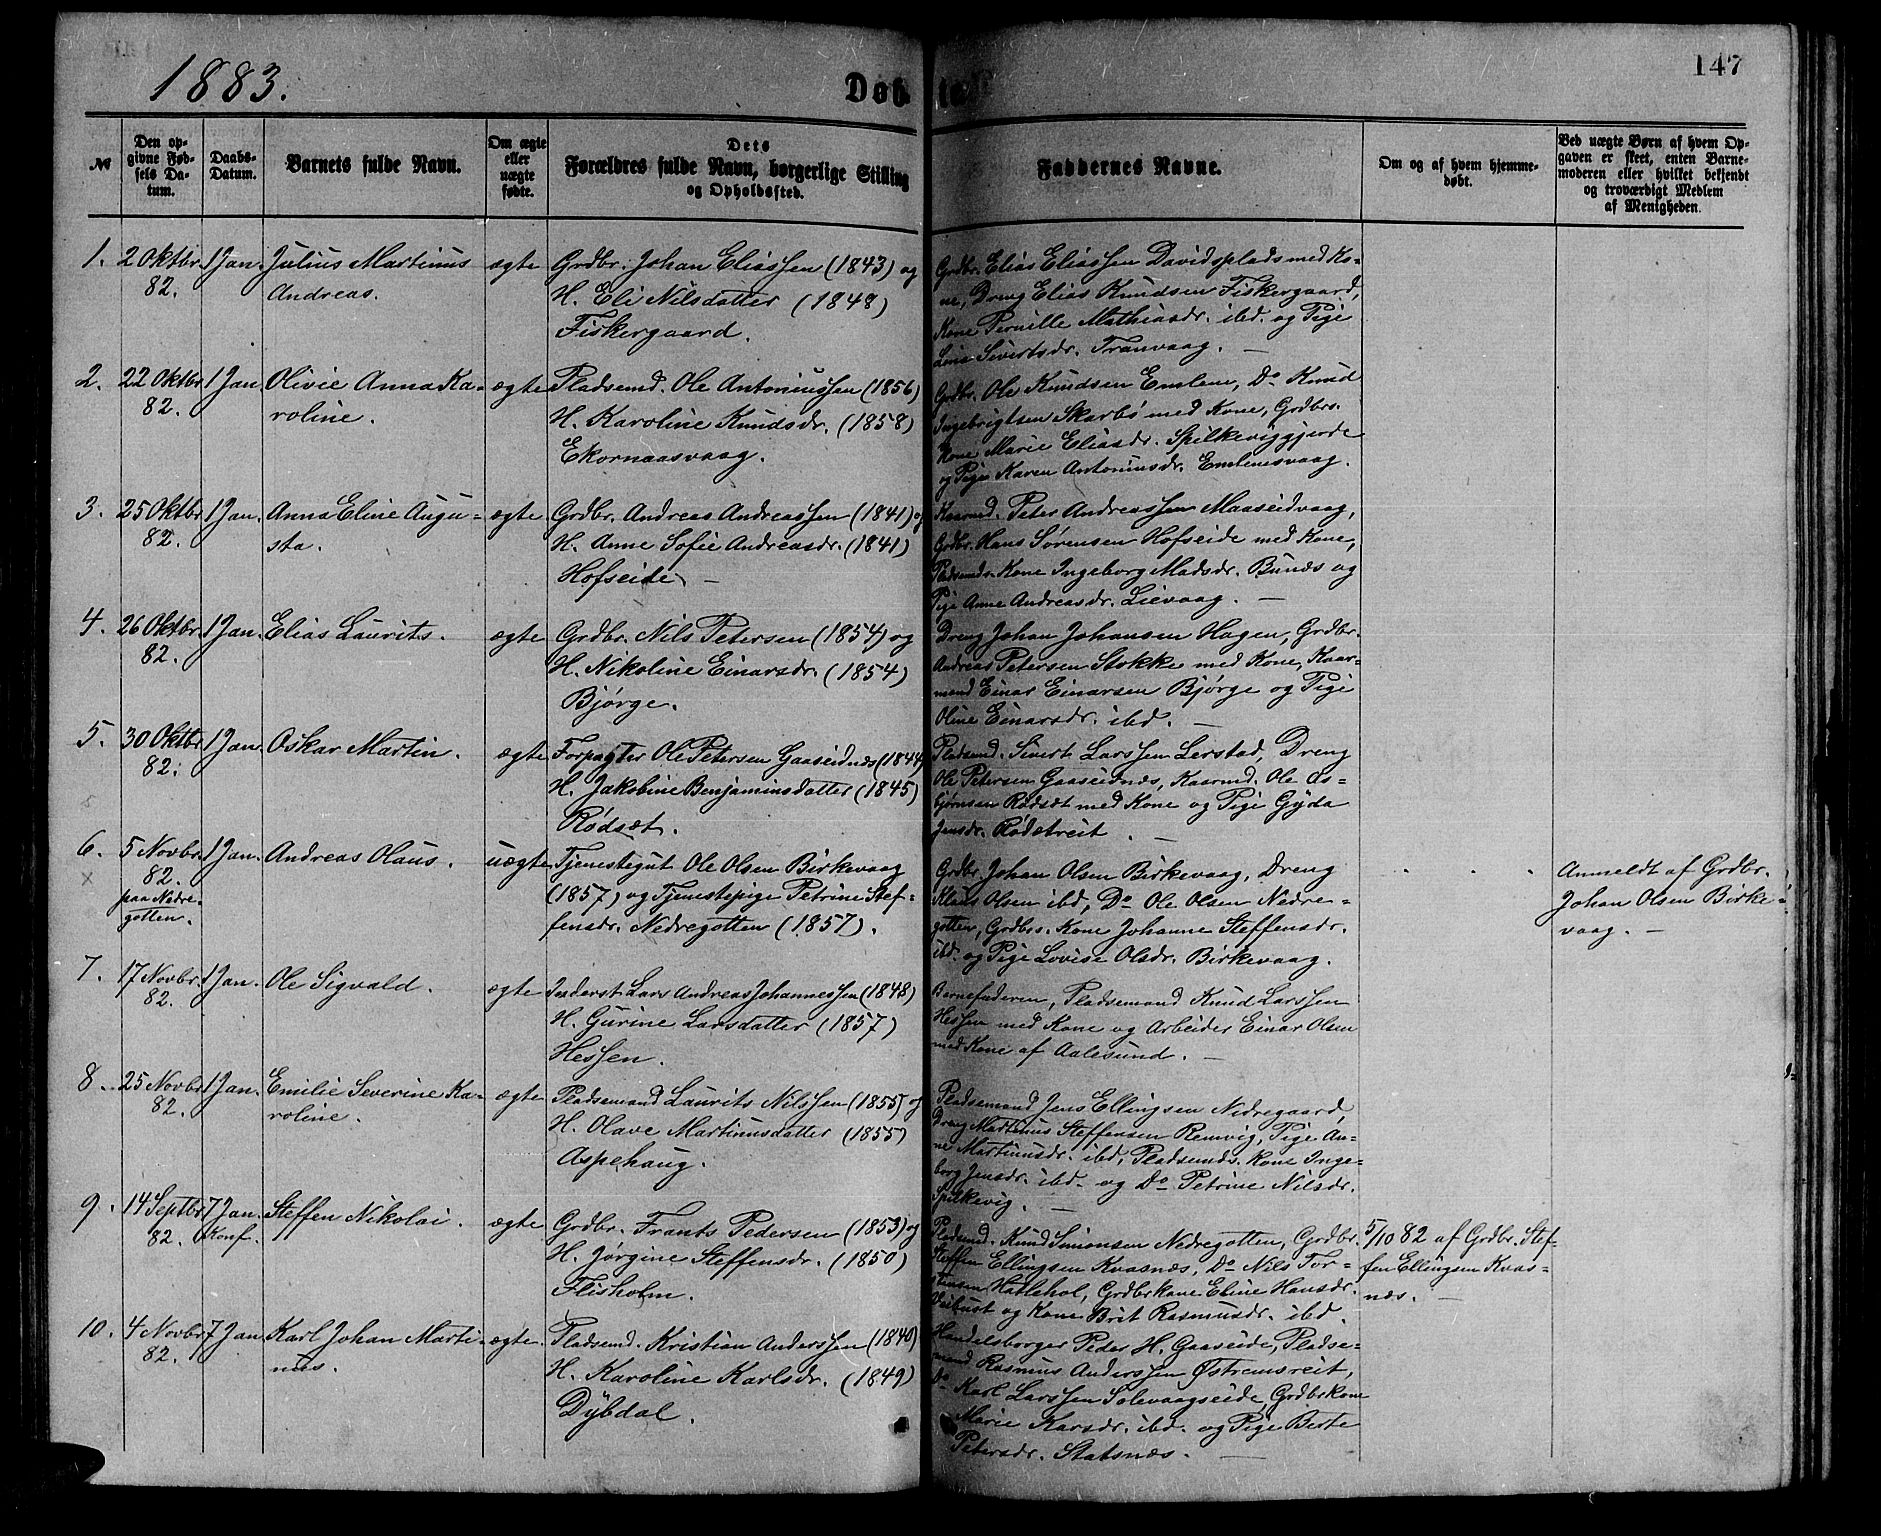 1883.
147
Døb
№
Den op-
givne Fød-
sels Da-
tum.
Daabs-
Datum.
Barnets fulde Navn.
Om ægte
eller
uægte
fødte.
Dets
Forældres fulde Navn, borgerlige Stilling
og Opholdssted.
Faddernes Navne.
Om og af hvem hjemme-
døbt.
Ved uægte Børn af hvem Op-
gaven er skeet, enten Barne-
moderen eller hvilket bekjendt
og troværdigt Medlem
af Menigheden.
1. 2 Oktbr. 1 Jan. Julius Martinus ægte Grdbr. Johan Eliassen (1843) og
82. Andreas. H. Eli Nilsdatter (1848)
Fiskergaard.
Grdbr. Elias Eliassen Davidsplads med Ko-
ne, Dreng Elias Knudsen Fiskergaard,
Kone Pernille Mathiasdr. ibd. og Pige
Lina Sivertsdr. Tranvaag. —
2. 22 Oktbr. 1 Jan Olivie Anna Ka- ægte Pladsemd. Ole Antoniussen (1856)
82. roline. H. Karoline Knudsdr. (1858)
Ekornaasvaag.
Grdbr. Ole Knudsen Emblem, Do Knud
Ingebrigtsen Skarbø med Kone, Grdbrs.
Kone Marie Eliasdr. Spilkeviggjerde
og Pige Karen Antoniusdr. Emblemsvaag.
3. 25 Oktbr. 1 Jan. Anna Eline Augu- ægte Grdbr. Andreas Andreassen (1841) og
82. sta. H. Anne Sofie Andreasdr. (1841)
Hofseide. —
Kaarmd. Peter Andreassen Maaseidvaag,
Grdbr. Hans Sørensen Hofseide med Kone,
Pladsemds. Kone Ingeborg Madsdr. Bunæs og
Pige Anne Andreasdr. Lievaag. —
4. 26 Oktbr. 1 Jan. Elias Laurits. ægte Grdbr. Nils Petersen (1854) og
82. H. Nikoline Einarsdr. (1854)
Bjørge.
Dreng Johan Johansen Hagen, Grdbr.
Andreas Petersen Stokke med Kone, Kaar-
mand Einar Einarsen Bjørge og Pige
Oline Einarsdr. ibd. —
5. 30 Oktbr 1 Jan. Oskar Martin. ægte Forpagter Ole Petersen Gaaseidnæs (1844)
82. H. Jakobine Benjaminsdatter (1845)
Rødsæt.
Pladsemd. Sivert Larssen Lerstad, Dreng
Ole Petersen Gaaseidnæs, Kaarmd. Ole As-
bjørnsen Rødsæt med Kone og Pige Gyda
Jensdr. Rødsetreit. —
6. 5 Novbr. 1 Jan. Andreas Olaus. uægte Tjenestegut Ole Olsen Birkevaag
82. (1857) og Tjenestepige Petrine Stef-
paa Nedre- fensdr. Nedregotten (1857).
gotten.
Grdbr. Johan Olsen Birkevaag, Dreng
Klaus Olsen ibd, Do Ole Olsen Nedre-
gotten, Grdbrs. Kone Johanne Steffensdr.
ibd. og Pige Lovise Olsdr. Birkevaag.
Anmeldt af Grdbr.
Johan Olsen Birke-
vaag. —
7. 17 Novbr. 1 Jan. Ole Sigvald. ægte Inderst Lars Andreas Johannessen (1848)
82. H. Gurine Larsdatter (1857)
Hessen.
Barnefaderen, Pladsemand Knud Larssen
Hessen med Kone og Arbeider Einar Olsen
med Kone af Aalesund. —
8. 25 Novbr 1 Jan. Emilie Severine Ka- ægte Pladsemand Laurits Nilssen (1855) og
82. roline. H. Olave Martinusdatter (1855)
Aspehaug.
Pladsemand Jens Ellingsen Nedregaard,
Dreng Martinus Steffensen Remvig, Pige An-
ne Martinusdr. ibd, Pladsemds. Kone Inge-
borg Jensdr. ibd. og Do Petrine Nilsdr.
Spilkevig. —
9. 14 Septbr 7 Jan. Steffen Nikolai. ægte Grdbr. Frants Pedersen (1853) og
82. Konf. H. Jørgine Steffensdr. (1850)
Flisholm.
Pladsemd. Knud Simonsen Nedregotten, Grdbr.
Steffen Ellingsen Kvasnæs, Do Nils Tor-
stensen Hatlehol, Grdbrkone Eline Hansdr.
Veibust og Kone Brit Rasmusdr. ibd.
5/10 82 af Grdbr. Stef-
fen Ellingsen Kvas-
næs. —
10. 4 Novbr 7 Jan Karl Johan Marti- ægte. Pladsemd. Kristian Anderssen (1840)
82. nus. H. Karoline Karlsdr. (1849)
Dybdal.
Handelsborger Peder H. Gaaseide, Pladse-
mand Rasmus Anderssen Østremsreit,
Do Karl Larssen Solevaagseide, Grdbrkone
Marie Karsdr. ibd. og Pige Berte
Petersdr. Slatsnæs. —